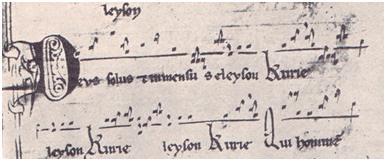 leyson
Deus solus et inmensus eleyson Kirie
leyson Kirie leyson Kirie Qui